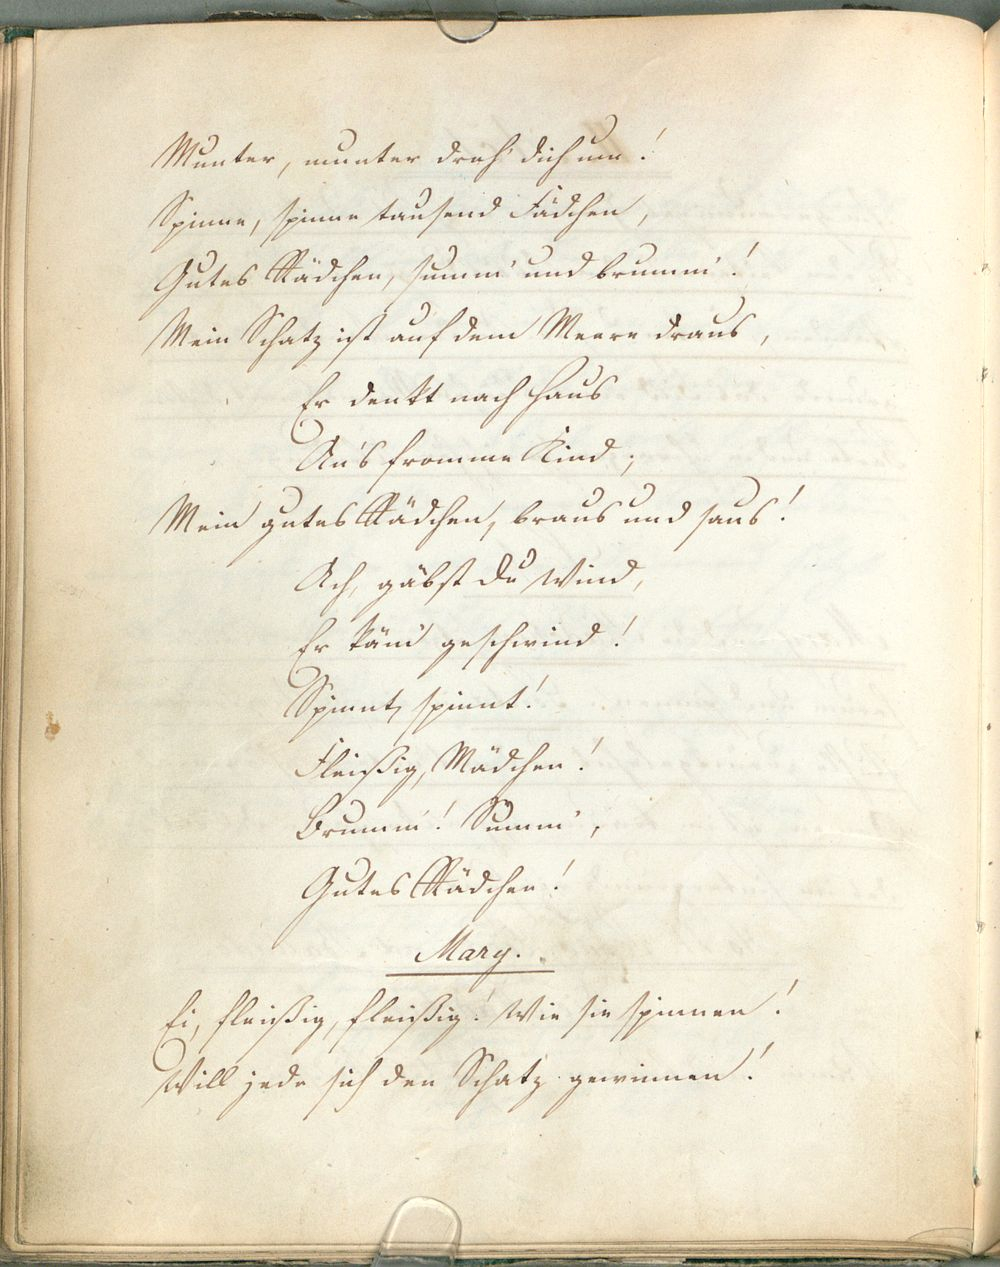 Munter, munter dreh' dich um!
Spinne, spinne tausend Fädchen,
Gutes Rädchen, summ' und brumm'!
Mein Schatz ist auf dem Meere draus,
Er denkt nach Haus
An's fromme Kind;
Mein gutes Rädchen, braus und saus!
Ach, gäbst du Wind,
Er käm' geschwind!
Spinnt, spinnt!
Fleißig, Mädchen!
Brumm'! Summ',
Gutes Rädchen!
Mary.
Ei, fleißig, fleißig! Wie sie spinnen!
Will jede sich den Schatz gewinnen!